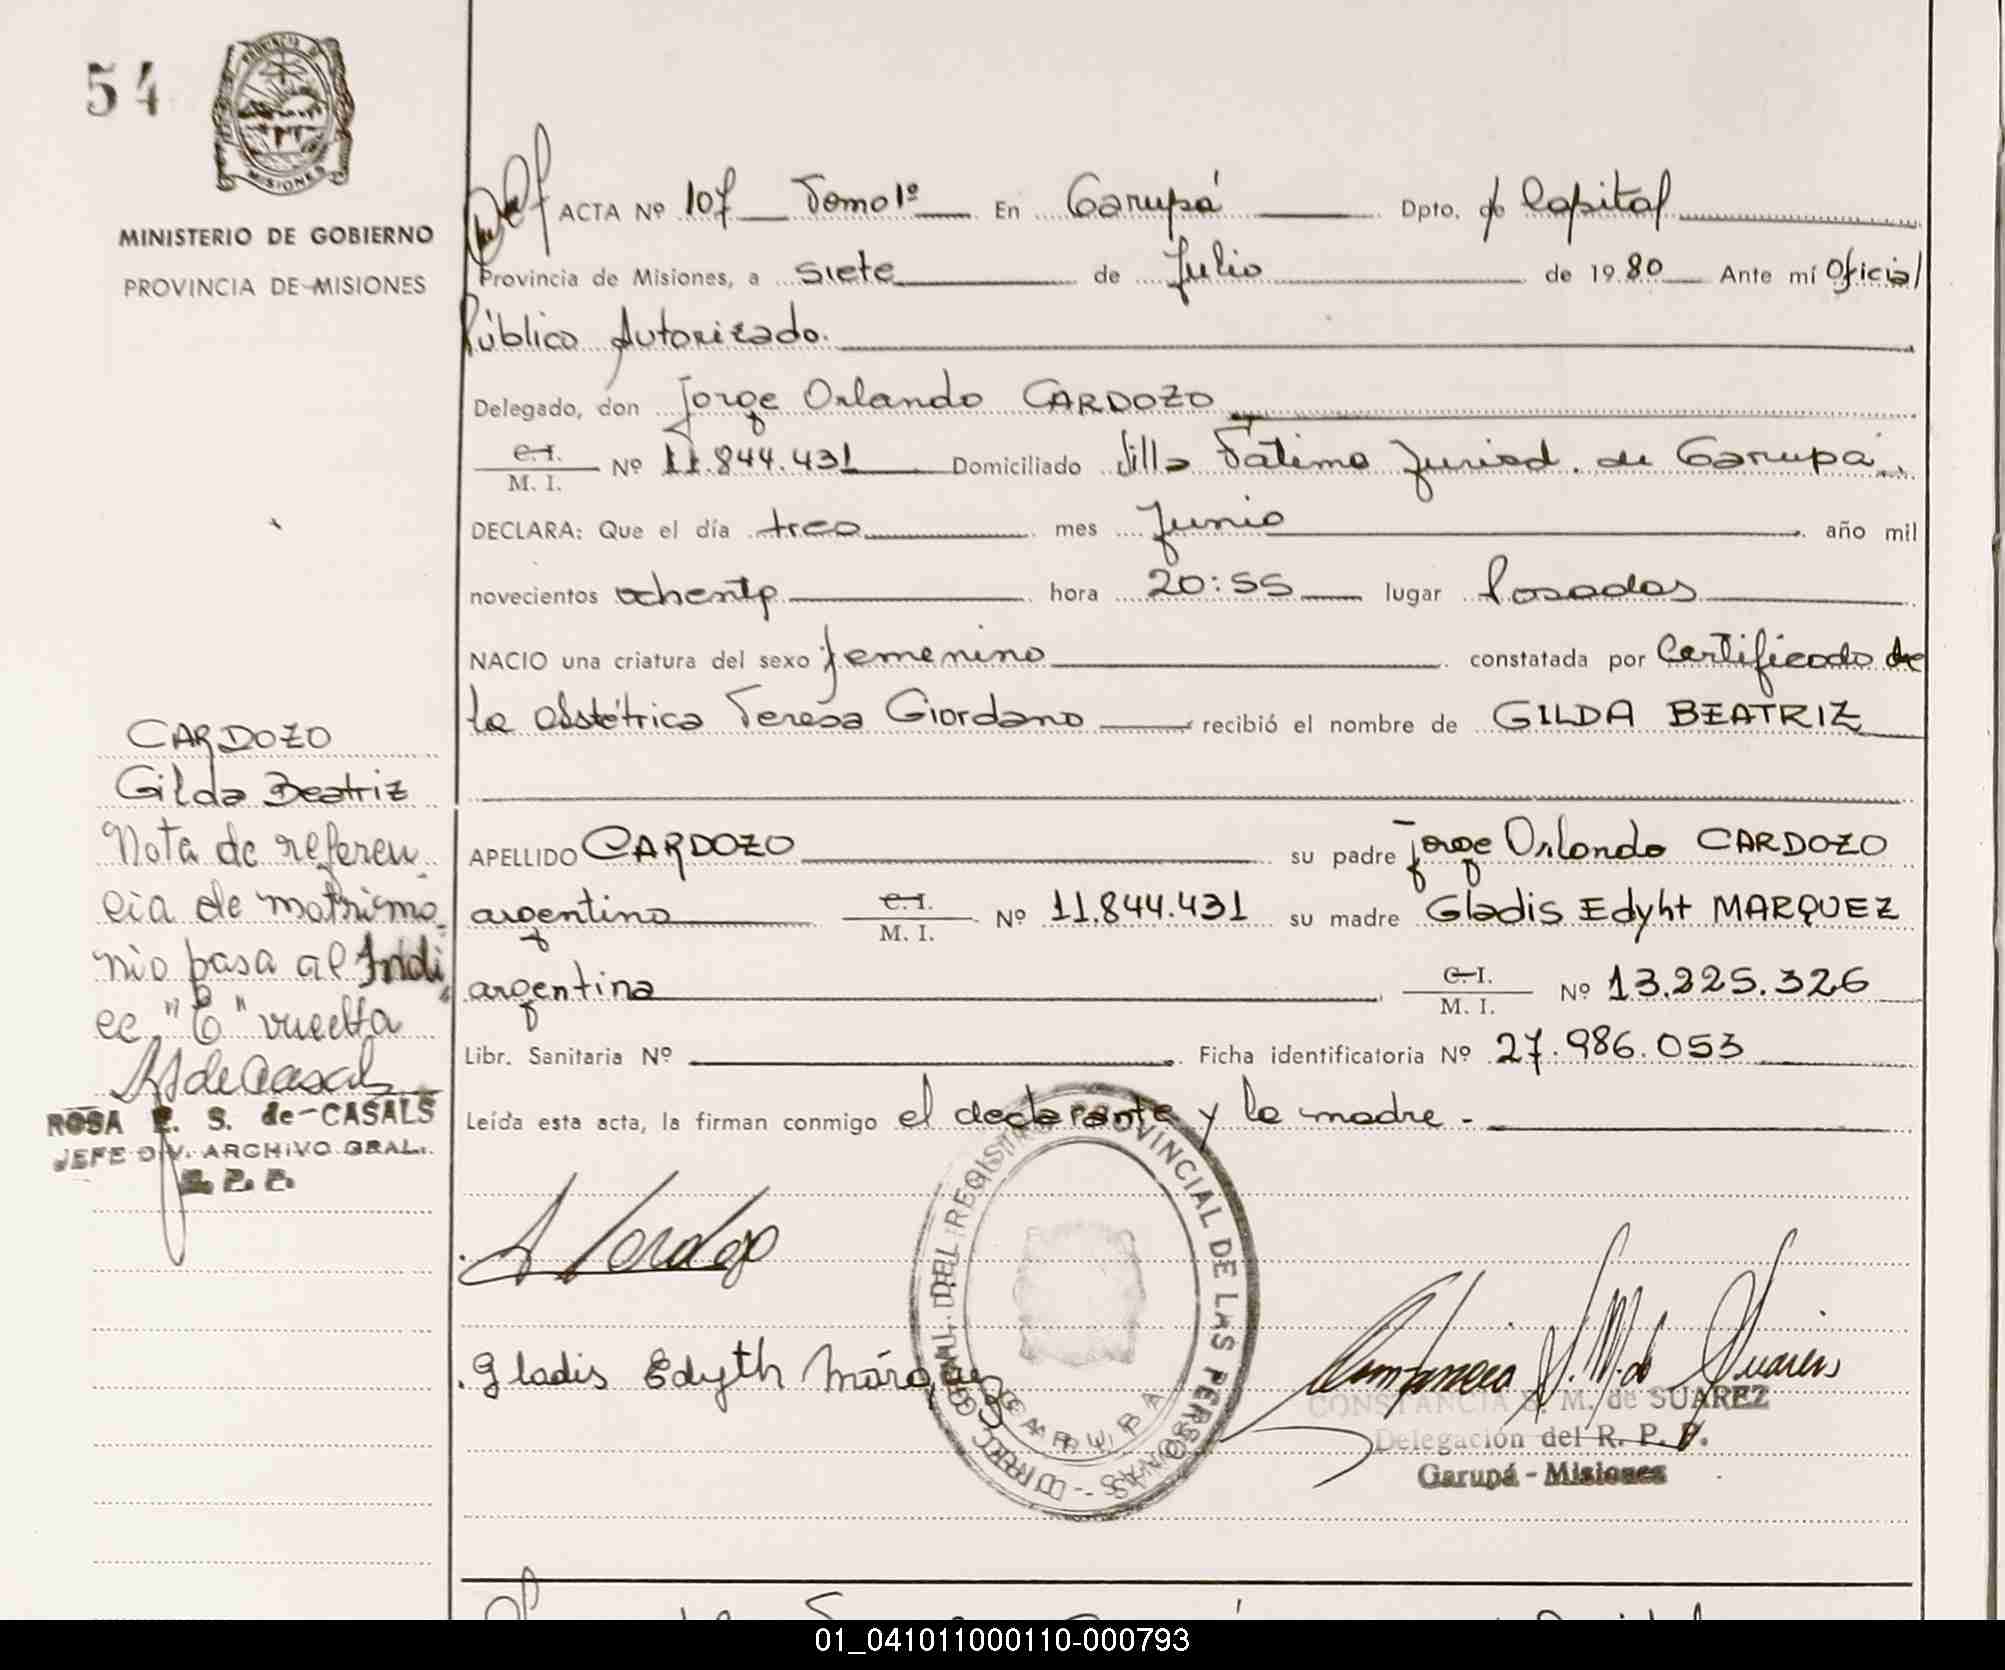 54
PROVINCIA DE
MISIONES
MINISTERIO DE GOBIERNO
PROVINCIA DE MISIONES
ACTA Nº 107 Tomo 1º En Garupá Dpto. Capital
Provincia de Misiones, a siete de Julio de 1980 Ante mí Oficial
Público Autorizado.
Delegado, don Jorge Orlando CARDOZO
C.I.
M. I. Nº 11.844.431 Domiciliado Villa Fatima Jurisd. de Garupá
DECLARA: Que el día tres mes Junio año mil
novecientos ochenta hora 20:55 lugar Posadas
NACIO una criatura del sexo femenino constatada por Certificado de
la obstétrica Teresa Giordano recibió el nombre de GILDA BEATRIZ
APELLIDO CARDOZO su padre Jorge Orlando CARDOZO
argentino C.I.
M. I. Nº 11.844.431 su madre Gladis Edyht MARQUEZ
argentina C.I.
M. I. Nº 13.225.326
Libr. Sanitaria Nº Ficha identificatoria Nº 27.986.053
Leída esta acta, la firman conmigo el declarante y la madre.-
CARDOZO
Gilda Beatriz
Nota de referen
cia de matrimo
nio pasa al Indi
ce "C" vuelta
ROSA E. S. de CASALS
JEFE DIV. ARCHIVO GRAL.
Gladis Edyth Márquez
DEL REGISTRO PROVINCIAL DE LAS PERSONAS
GARUPA
CONSTANCIA S. M. de SUAREZ
Delegación del R. P. P.
Garupá - Misiones
01_041011000110-000793